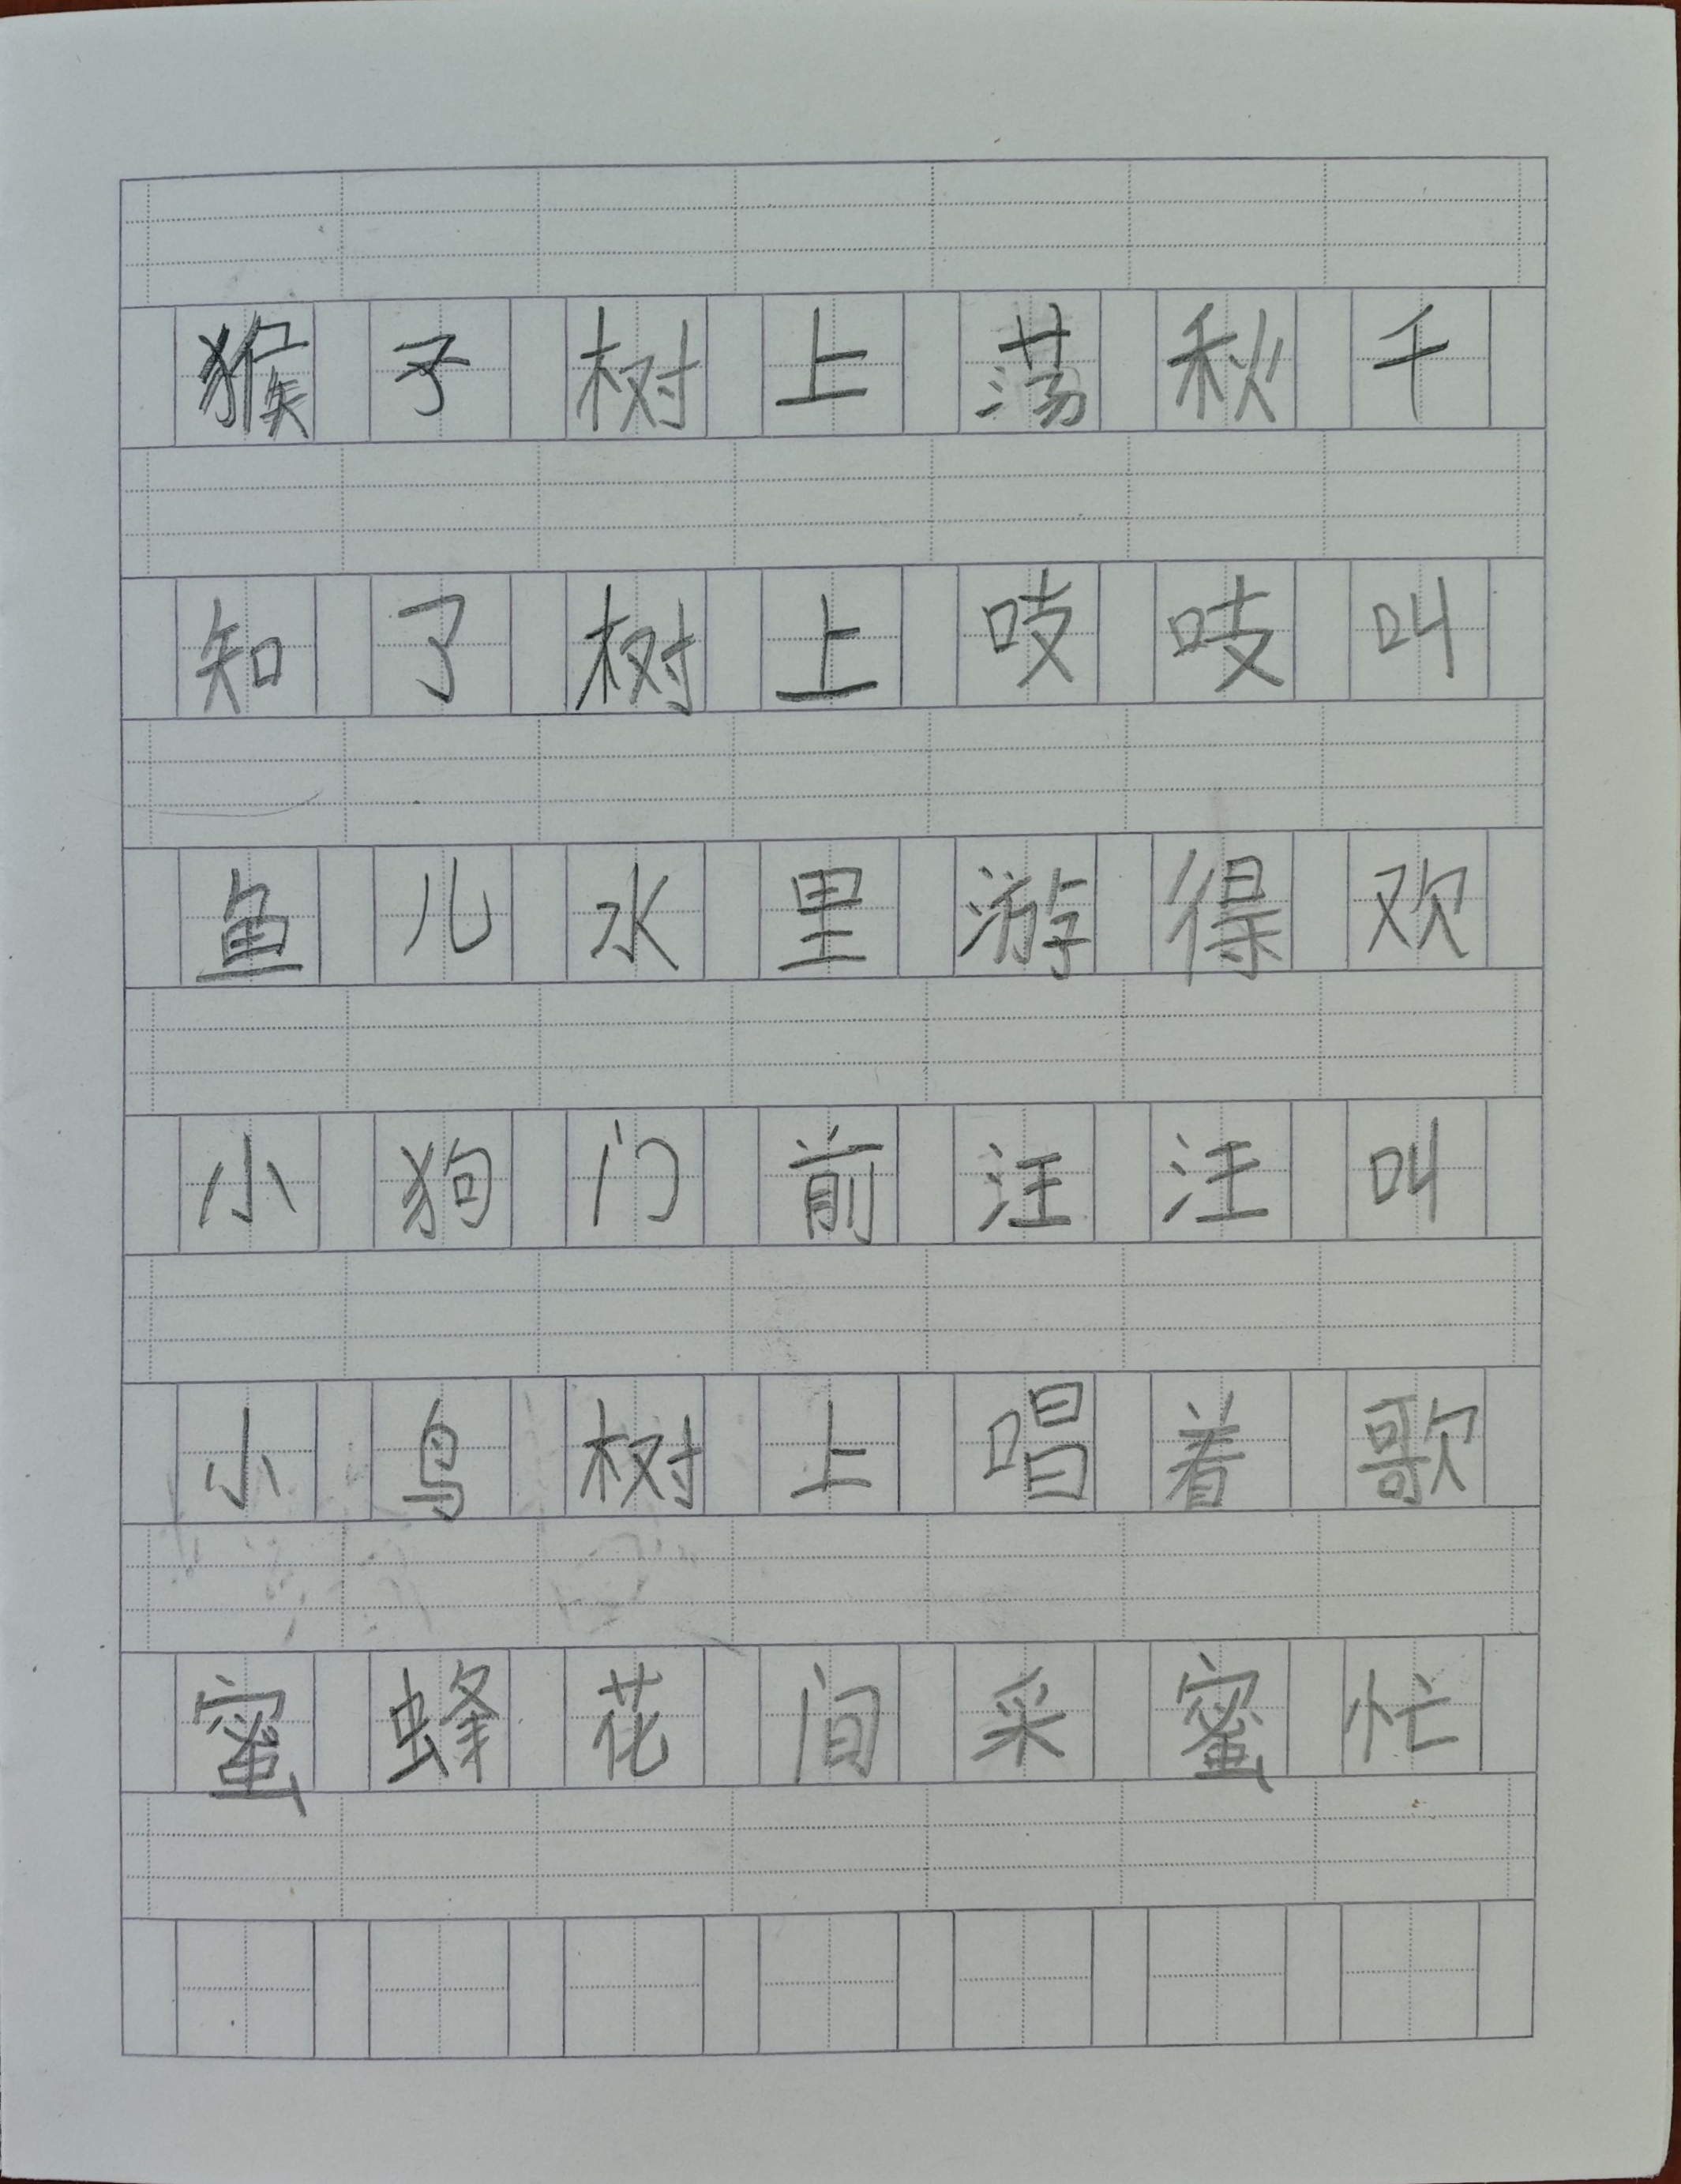 猴子树上荡秋千
知了树上吱吱叫
鱼儿水里游得欢
小狗门前汪汪叫
小鸟树上唱着歌
蜜蜂花间采蜜忙